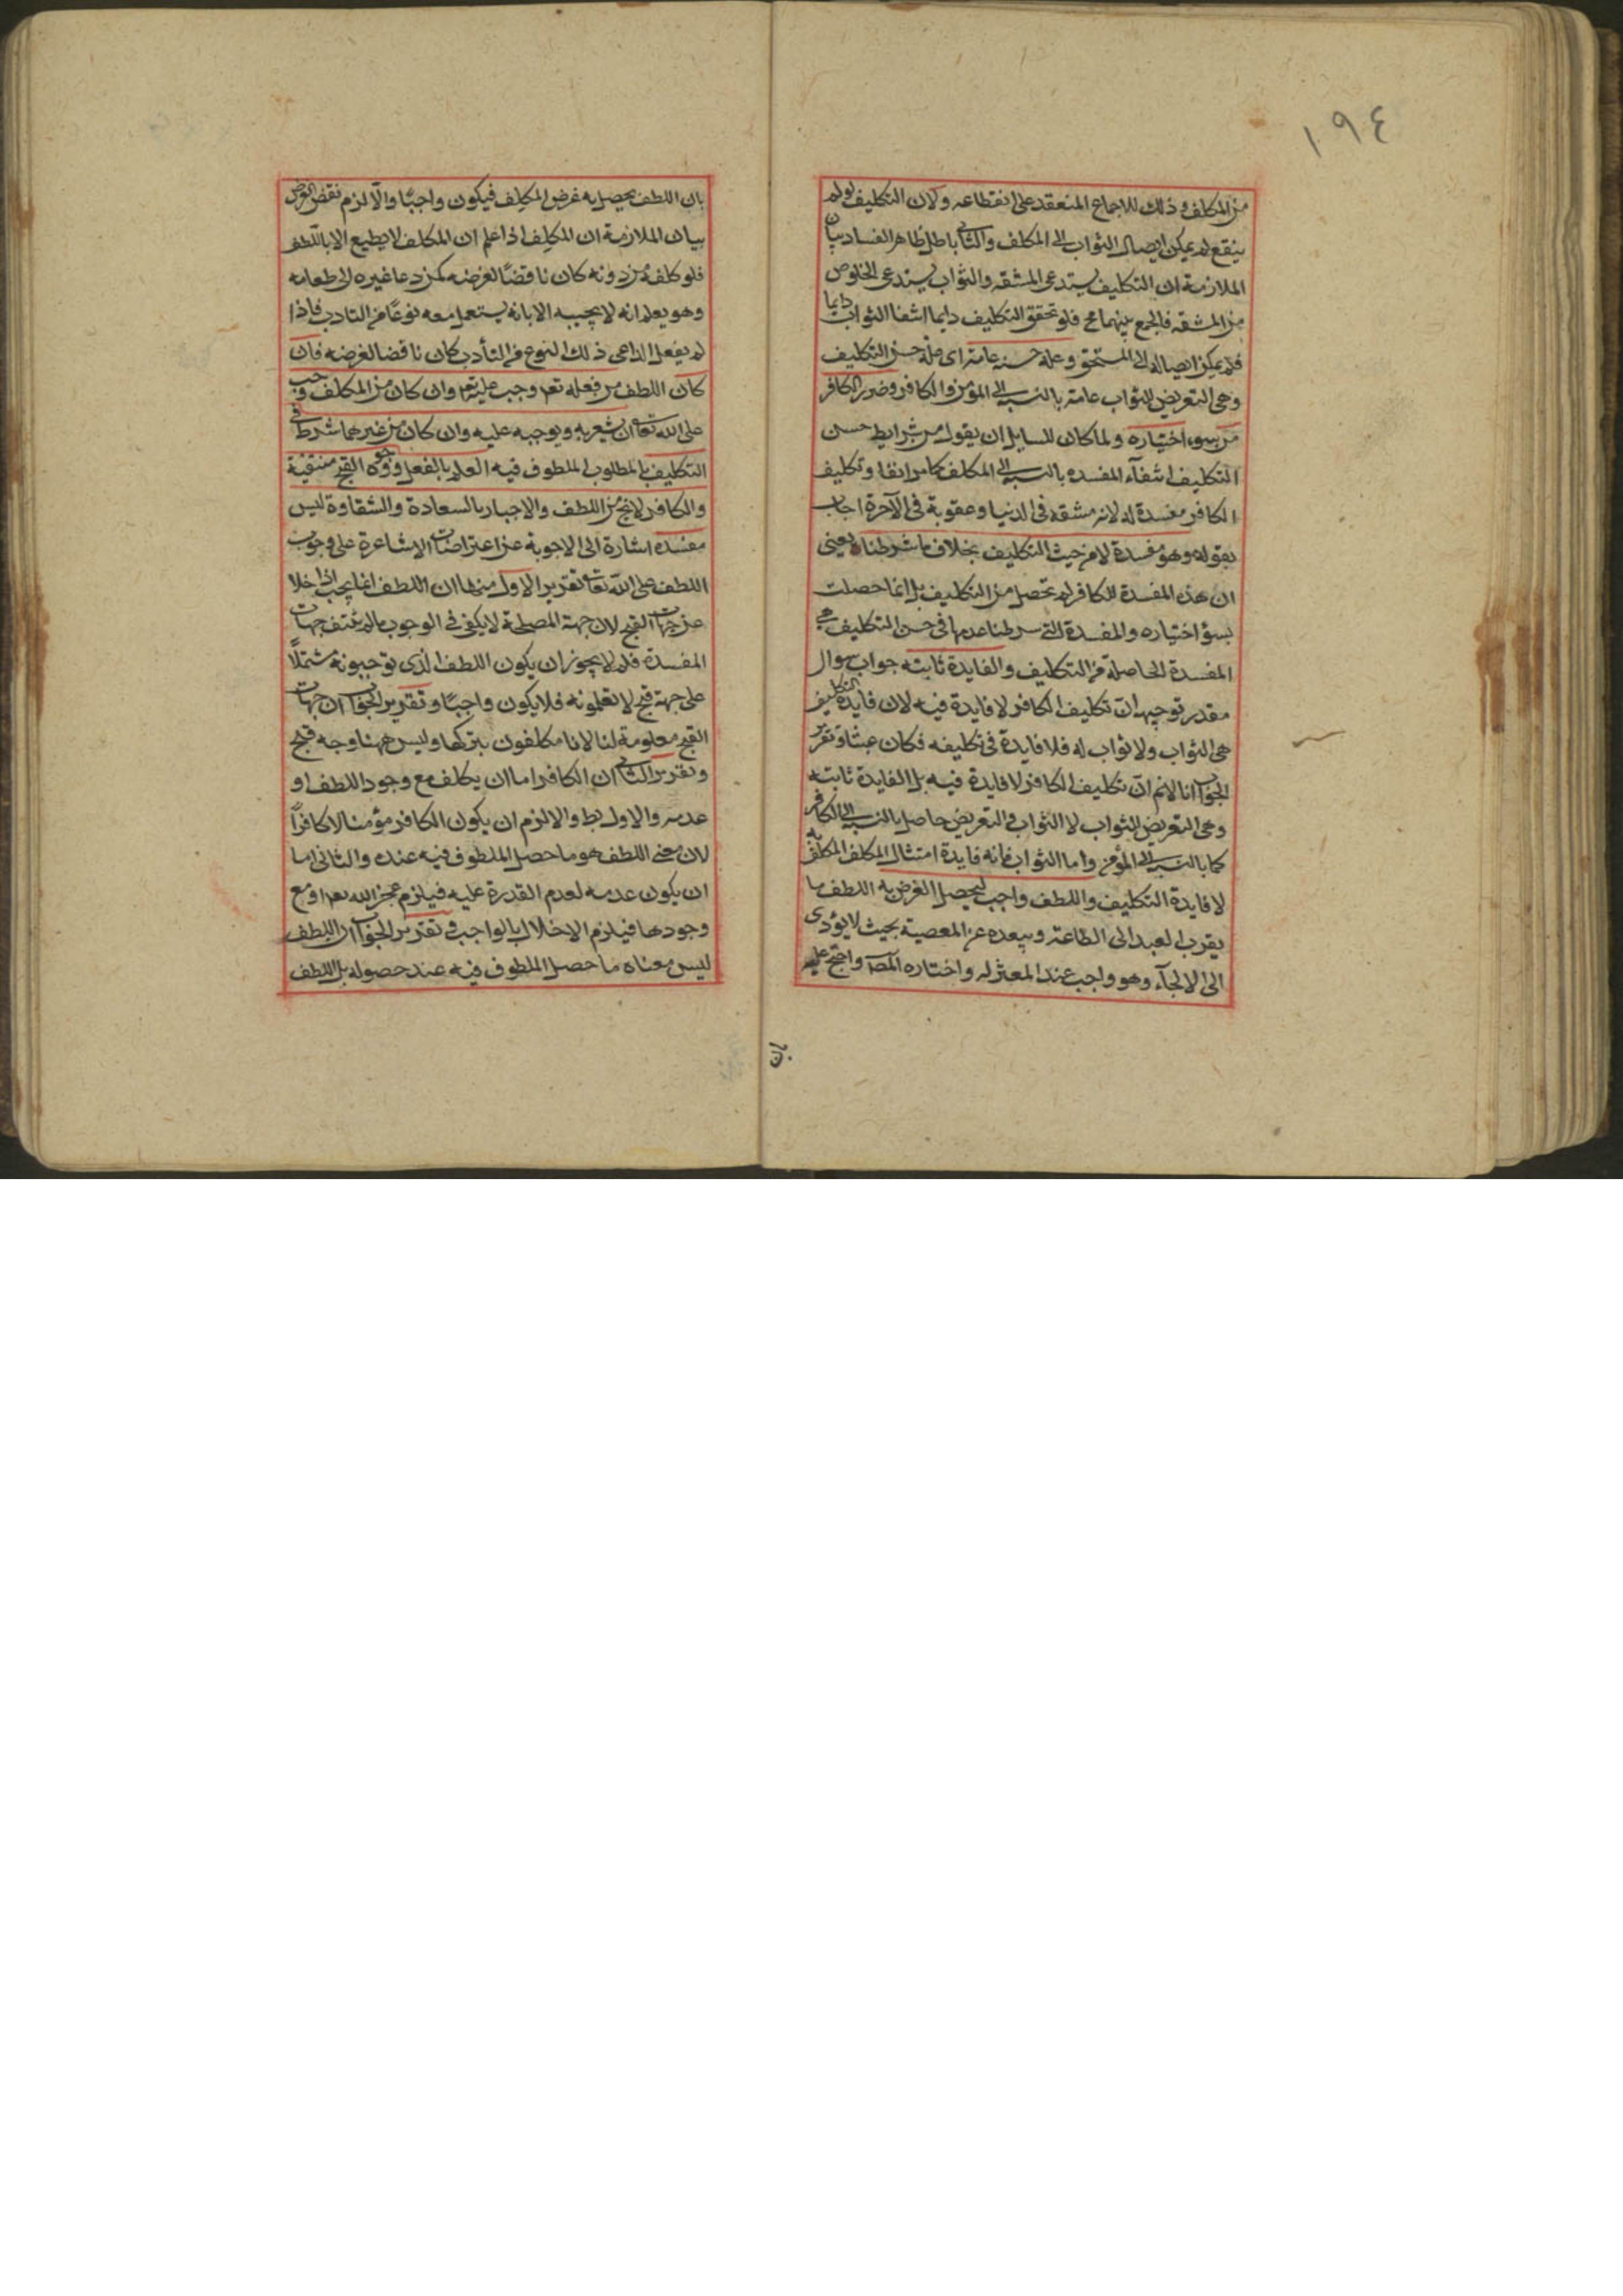 ١٩٤
من المكلف وذلك للاجماع المنعقد على انقطاعه ولان التكليف لو لم
ينقع لم يمكن ايصال الثواب الى المكلف والثانى باطل ظاهر الفساد بيان
الملازمة ان التكليف يستدعى المشقه والثواب يستدعى الخلوص
من المشقه فالجمع بينهما مح فلو تحقق التكليف دايما انتفا الثواب دايما
فلم يمكن ايصاله الى المستحق وعلة حسنه عامة اى علة حسن التكليف
وهى التعريض للثواب عامة بالنسبة الى المؤمن والكافر وضرر الكافر
من سوء اختياره ولما كان للسايل ان يقول من شرايط حسن
التكليف انتفآء المفسده بالنسبة الى المكلف كما مر انفا وتكليف
الكافر مفسدة له لانه مشقه فى الدنيا وعقوبة فى الآخرة اجاب
بقوله وهو مفسدة لا من حيث التكليف بخلاف ما شرطناه يعنى
ان هذه المفسدة للكافر لم تحصل من التكليف بل انما حصلت
بسؤ اختياره والمفسدة التى شرطنا عدمها فى حسن التكليف هى
المفسدة الحاصلة من التكليف والفايدة ثابته جواب سوال
مقدر توجيهه ان تكليف الكافر لا فايدة فيه لان فايدة التكليف
هى الثواب ولا ثواب له فلا فايدة فى تكليفه فكان عبثا وتقرير
الجواب انا لا نم ان تكليف الكافر لا فايدة فيه بل الفايدة ثابته
وهى التعريض للثواب لا الثواب والتعريض حاصل بالنسبة الى الكافر
كما بالنسبة الى المؤمن واما الثواب فانه فايدة امتثال المكلف المكلف به
لا فايدة التكليف واللطف واجب ليحصل الغرض به اللطف ما
يقرب العبد الى الطاعة ويبعده عن المعصية بحيث لا يؤدى
الى الالجآء وهو واجب عند المعتزله واختاره المص واحتج عليه
بان
بان اللطف يحصل به غرض المكلف فيكون واجبًا والّا لزم نقض الغرض
بيان الملازمة ان المكلف اذا علم ان المكلف لا يطيع الا باللطف
فلو كلفه من دونه كان ناقضًا لغرضه كمن دعا غيره الى طعامه
وهو يعلم انه لا يجيبه الا بانه يستعمل معه نوعًا من التادب فاذا
لم يفعل الداعى ذلك النوع من التأدب كان ناقضا لغرضه فان
كان اللطف من فعله تعم وجب عليه تعم وان كان من المكلف وجب
على الله تعالى ان يشعر به ويوجبه عليه وان كان من غيرهما شرط فى
التكليف بالمطلوب الملطوف فيه العلم بالفعل ووجوه القبح منتفية
والكافر لا يخ من اللطف والاجبار بالسعادة والشقاوة ليس
مفسده اشارة الى الاجوبة عن اعتراضات الاشاعرة على وجوب
اللطف على الله تعالى تقرير الاول منها ان اللطف انما يجب اذا خلا
عن جهات القبح لان جهة المصلحة لا يكفى فى الوجوب ما لم تنتف جهات
المفسدة فلم لا يجوز ان يكون اللطف الذى توجبونه مشتملًا
على جهة قبح لا تعلمونه فلا يكون واجبًا وتقرير الجواب ان جهات
القبح معلومة لنا لانا مكلفون بتركها وليس ههنا وجه قبح
وتقرير الثانى ان الكافر اما ان يكلف مع وجود اللطف او
عدمه والاول بط والا لزم ان يكون الكافر مؤمنا لا كافرًا
لان معنى اللطف هو ما حصل الملطوف فيه عنده والثانى اما
ان يكون عدمه لعدم القدرة عليه فيلزم عجز الله تعم او مع
وجودها فيلزم الاخلال بالواجب وتقرير الجواب ان اللطف
ليس معناه ما حصل الملطوف فيه عند حصوله بل اللطف